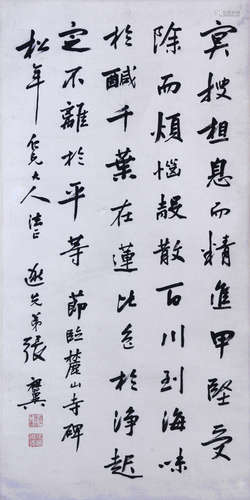 冥搜想息而精進甲堅受
除而煩惱殼散百川到海味
於醎千葉在蓮比色於淨起
定不離於平等 節臨麓山寺碑
松年仁兄大人法正 遜先弟張翼